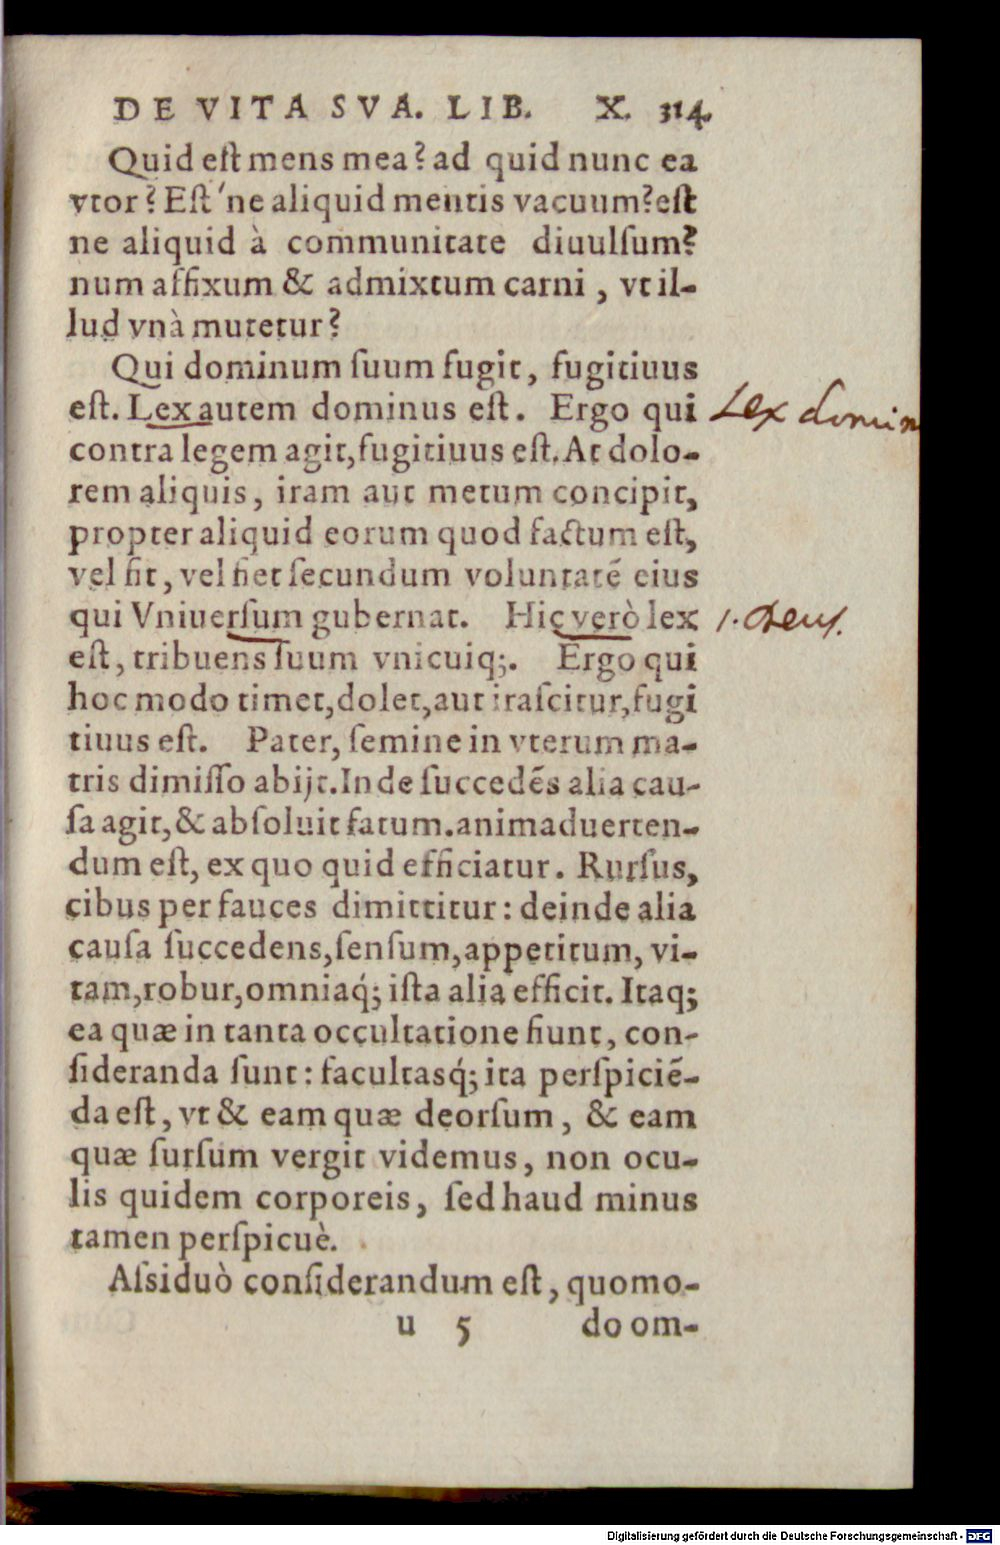 DE VITA SVA. LIB. X. 314.
Quid eſt mens mea? ad quid nunc ea
vtor? Eſt'ne aliquid mentis vacuum? eſt
ne aliquid à communitate diuulſum?
num affixum & admixtum carni, vt il-
lud vnà mutetur?
Qui dominum ſuum fugit, fugitiuus
eſt. Lex autem dominus eſt. Ergo qui
Lex domin
contra legem agit, fugitiuus eſt. At dolo-
rem aliquis, iram aut metum concipit,
propter aliquid eorum quod factum eſt,
vel fit, vel fiet ſecundum voluntatē eius
qui Vniuerſum gubernat. Hic verò lex
eſt, tribuens ſuum vnicuiq;. Ergo qui
hoc modo timet, dolet, aut iraſcitur, fugi
tiuus eſt. Pater, ſemine in vterum ma-
tris dimiſſo abijt. Inde ſuccedēs alia cau-
ſa agit, & abſoluit fatum. animaduerten-
dum eſt, ex quo quid efficiatur. Rurſus,
cibus per fauces dimittitur: deinde alia
cauſa ſuccedens, ſenſum, appetitum, vi-
tam, robur, omniaq́; iſta alia efficit. Itaq;
ea quæ in tanta occultatione fiunt, con-
ſideranda ſunt: facultasq́; ita perſpiciē-
da eſt, vt & eam quæ deorſum, & eam
quæ ſurſum vergit videmus, non ocu-
lis quidem corporeis, ſed haud minus
tamen perſpicuè.
Aſsiduò conſiderandum eſt, quomo-
u 5 do om-
Digitalisierung gefördert durch die Deutsche Forschungsgemeinschaft - DFG